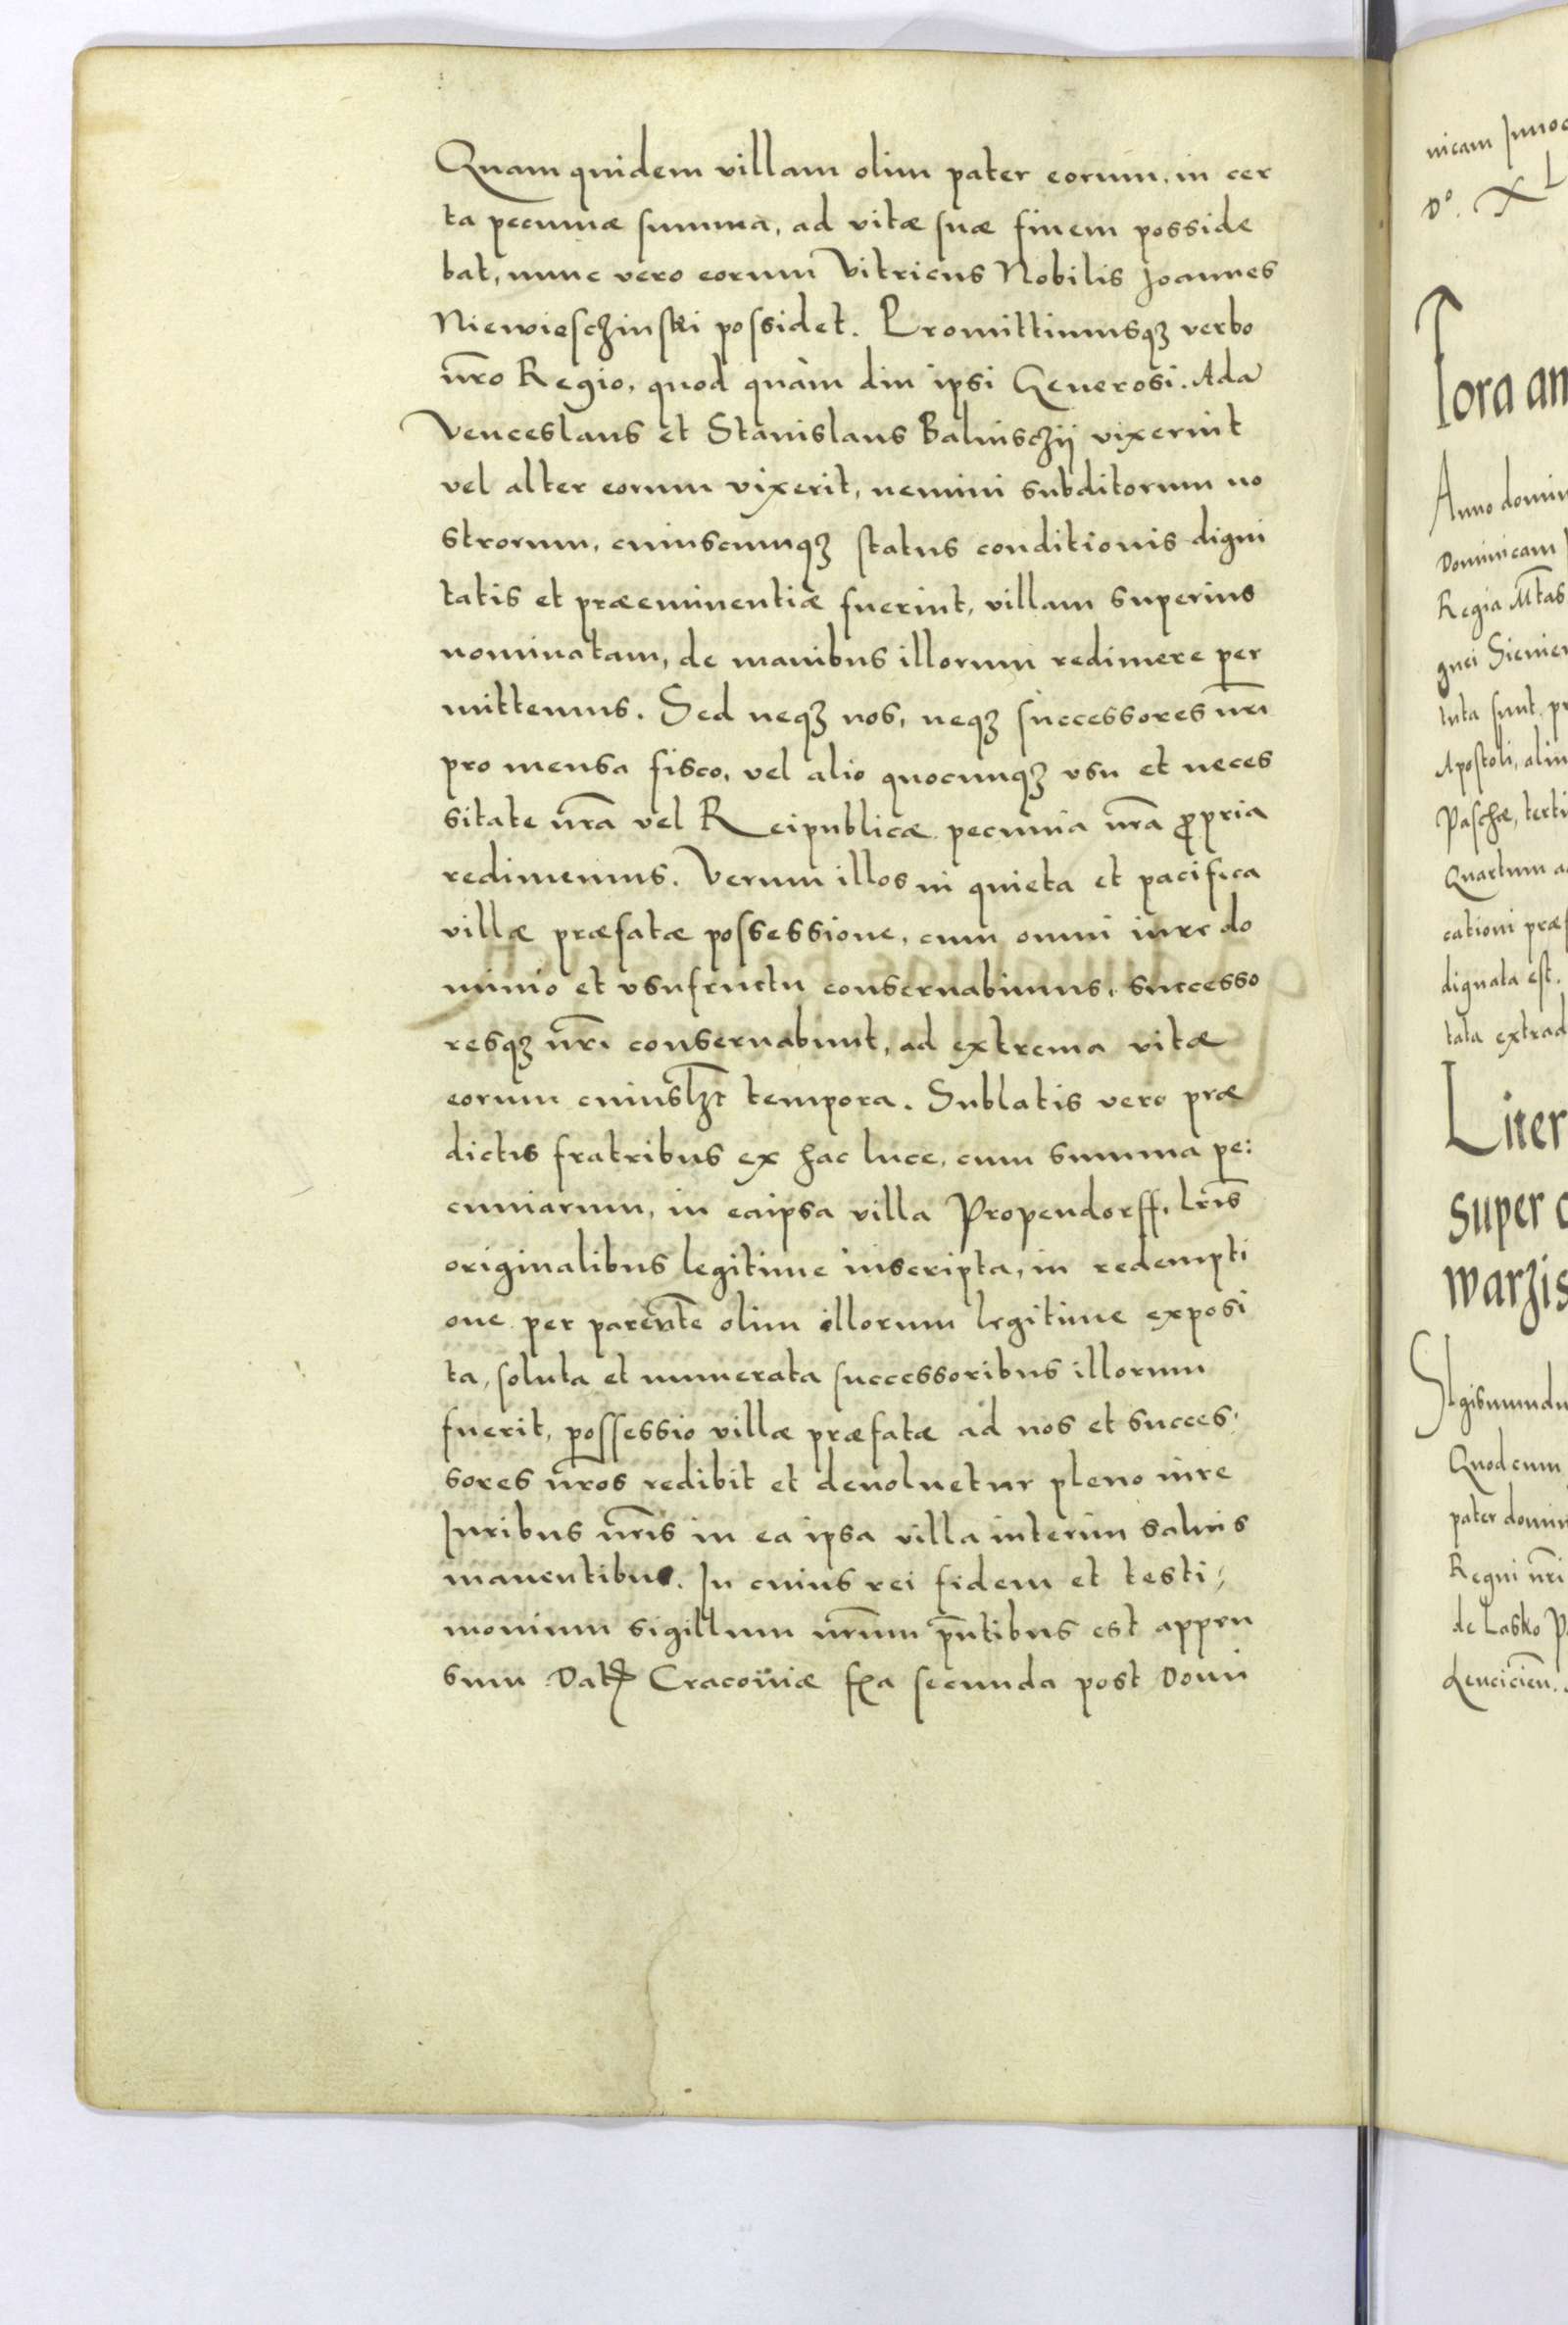 Quam quidem villam olim pater eorum, in cer
ta pecuniæ summa, ad vitæ suæ finem posside
bat, nunc vero eorum Vitricus Nobilis Joannes
Niewieschinski possidet. Promittimusqȝ verbo
nr̄o Regio, quod quàm diu ipsi Generosi. Ada
Venceslaus et Stanislaus Balinschij vixerint
vel alter eorum vixerit, nemini subditorum no
strorum, cuiuscumqȝ status conditionis digni
tatis et præeminentiæ fuerint, villam superius
nominatam, de manibus illorum redimere per
mittemus. Sed neqȝ nos, neqȝ successores nr̄i
pro mensa fisco, vel alio quocunqȝ vsu et neces
sitate nr̄a vel Reipublicæ pecunia nr̄a ꝓpria
redimemus. Verum illos in quieta et pacifica
villæ præfatæ possessione, cum omni iure do
minio et vsufructu conseruabimus, successo
resqȝ nr̄i conseruabunt, ad extrema vitæ
eorum cuiuslꝫt tempora. Sublatis vero præ
dictis fratribus ex hac luce, cum summa pe:
cuniarum, in eaipsa villa Propendorff, lr̄is
originalibus legitime inscripta, in redempti
one per parente̅ olim illorum legitime exposi
ta, soluta et numerata successoribus illorum
fuerit, possessio villæ præfatæ ad nos et succes,
sores nr̄os redibit et deuoluetur pleno iure
Juribus nr̄is in ea ipsa villa interim saluis
manentibus. In cuius rei fidem et testi,
monium sigillum nr̄um pn̄tibus est appen
sum Datꝭ Cracouiæ fꝛ̄a secunda post Domi
nicam Inuoc
D°. XL
Tora an
Anno domin
Dominicam
Regia Mt̄as
gnei Sienien
tuta sunt, pr
Apostoli, alin
Paschæ, terti
Quartum a
cationi præf
dignata est.
tata extrad
Liter
super
warzis
Sigismundu
Quod cum
pater domin
Regni nr̄i
de Lasko P
Lencicien̄.